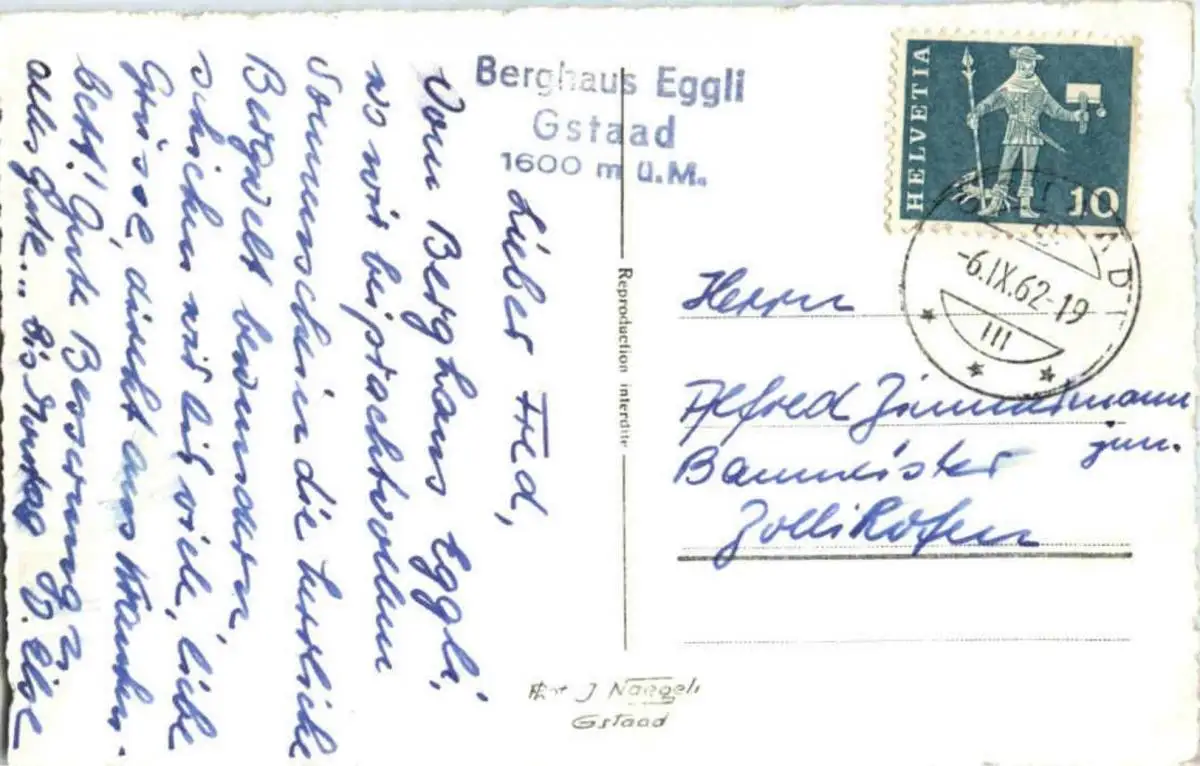 Berghaus Eggli
Gstaad
1600 m ü.M.
Lieber Fred,
Vom Berghaus Eggli,
wo wir bei prachtvollem
Sonnenschein die herrliche
Bergwelt bewundern,
schicken wir dir viele, liebe
Grüsse, direkt ans Kranken-
bett! Gute Besserung &
alles Gute... Bis Montag Else
HELVETIA
10
-6.IX.62-19
III
Reproduction interdite
Herrn
Alfred Zimmermann
Baumeister jun.
Zollikofen
Phot J Naegeli
Gstaad